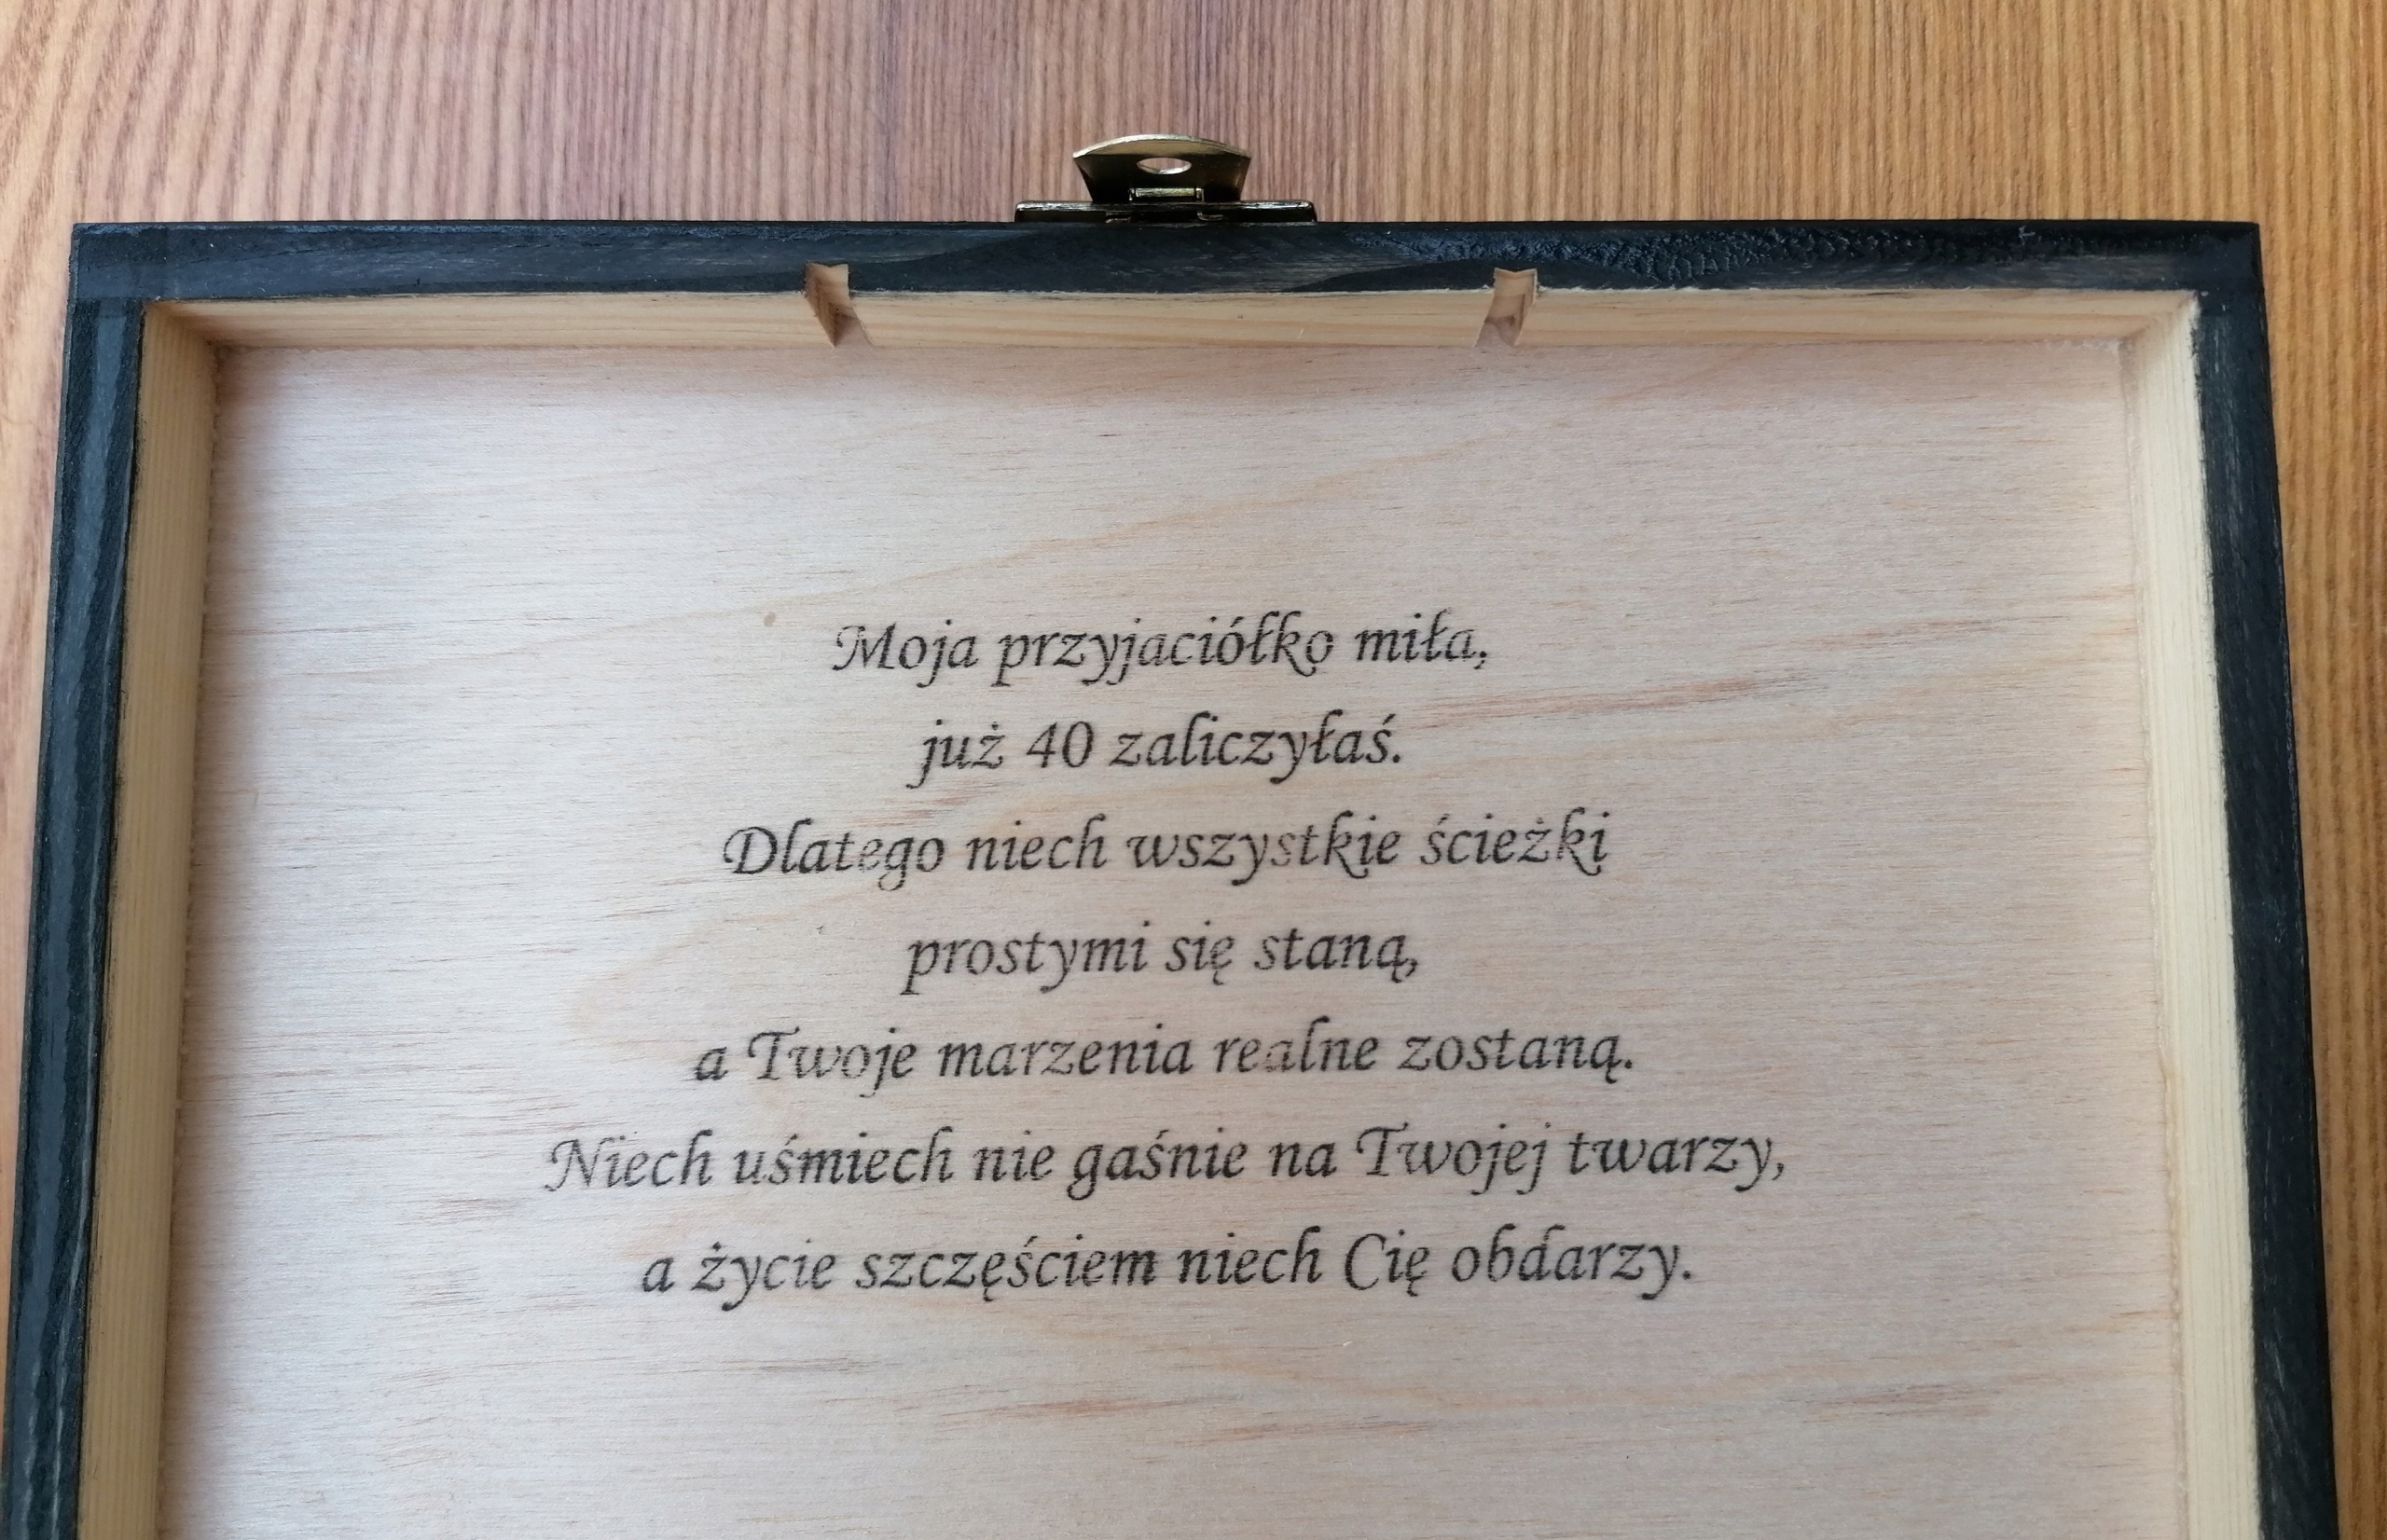 Moja przyjaciółko miła,
już 40 zaliczyłaś.
Dlatego niech wszystkie ścieżki
prostymi się staną,
a Twoje marzenia realne zostaną.
Niech uśmiech nie gaśnie na Twojej twarzy,
a życie szczęściem niech Cię obdarzy.